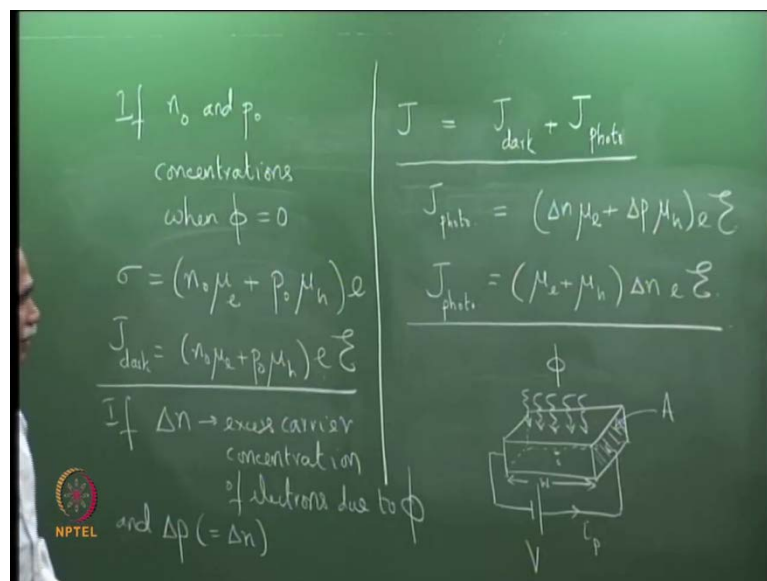 If n₀ and p₀
concentrations
when ϕ = 0
σ = (n₀μₑ + p₀μₕ) e
J_dark = (n₀μₑ + p₀μₕ) e ℰ
If Δn → excess carrier
concentration
of electrons due to ϕ
and Δp (= Δn)
J = J_dark + J_photo
J_photo. = (Δn μₑ + Δp μₕ) e ℰ
J_photo = (μₑ + μₕ) Δn e ℰ.
ϕ
A
w
i_p
V
NPTEL